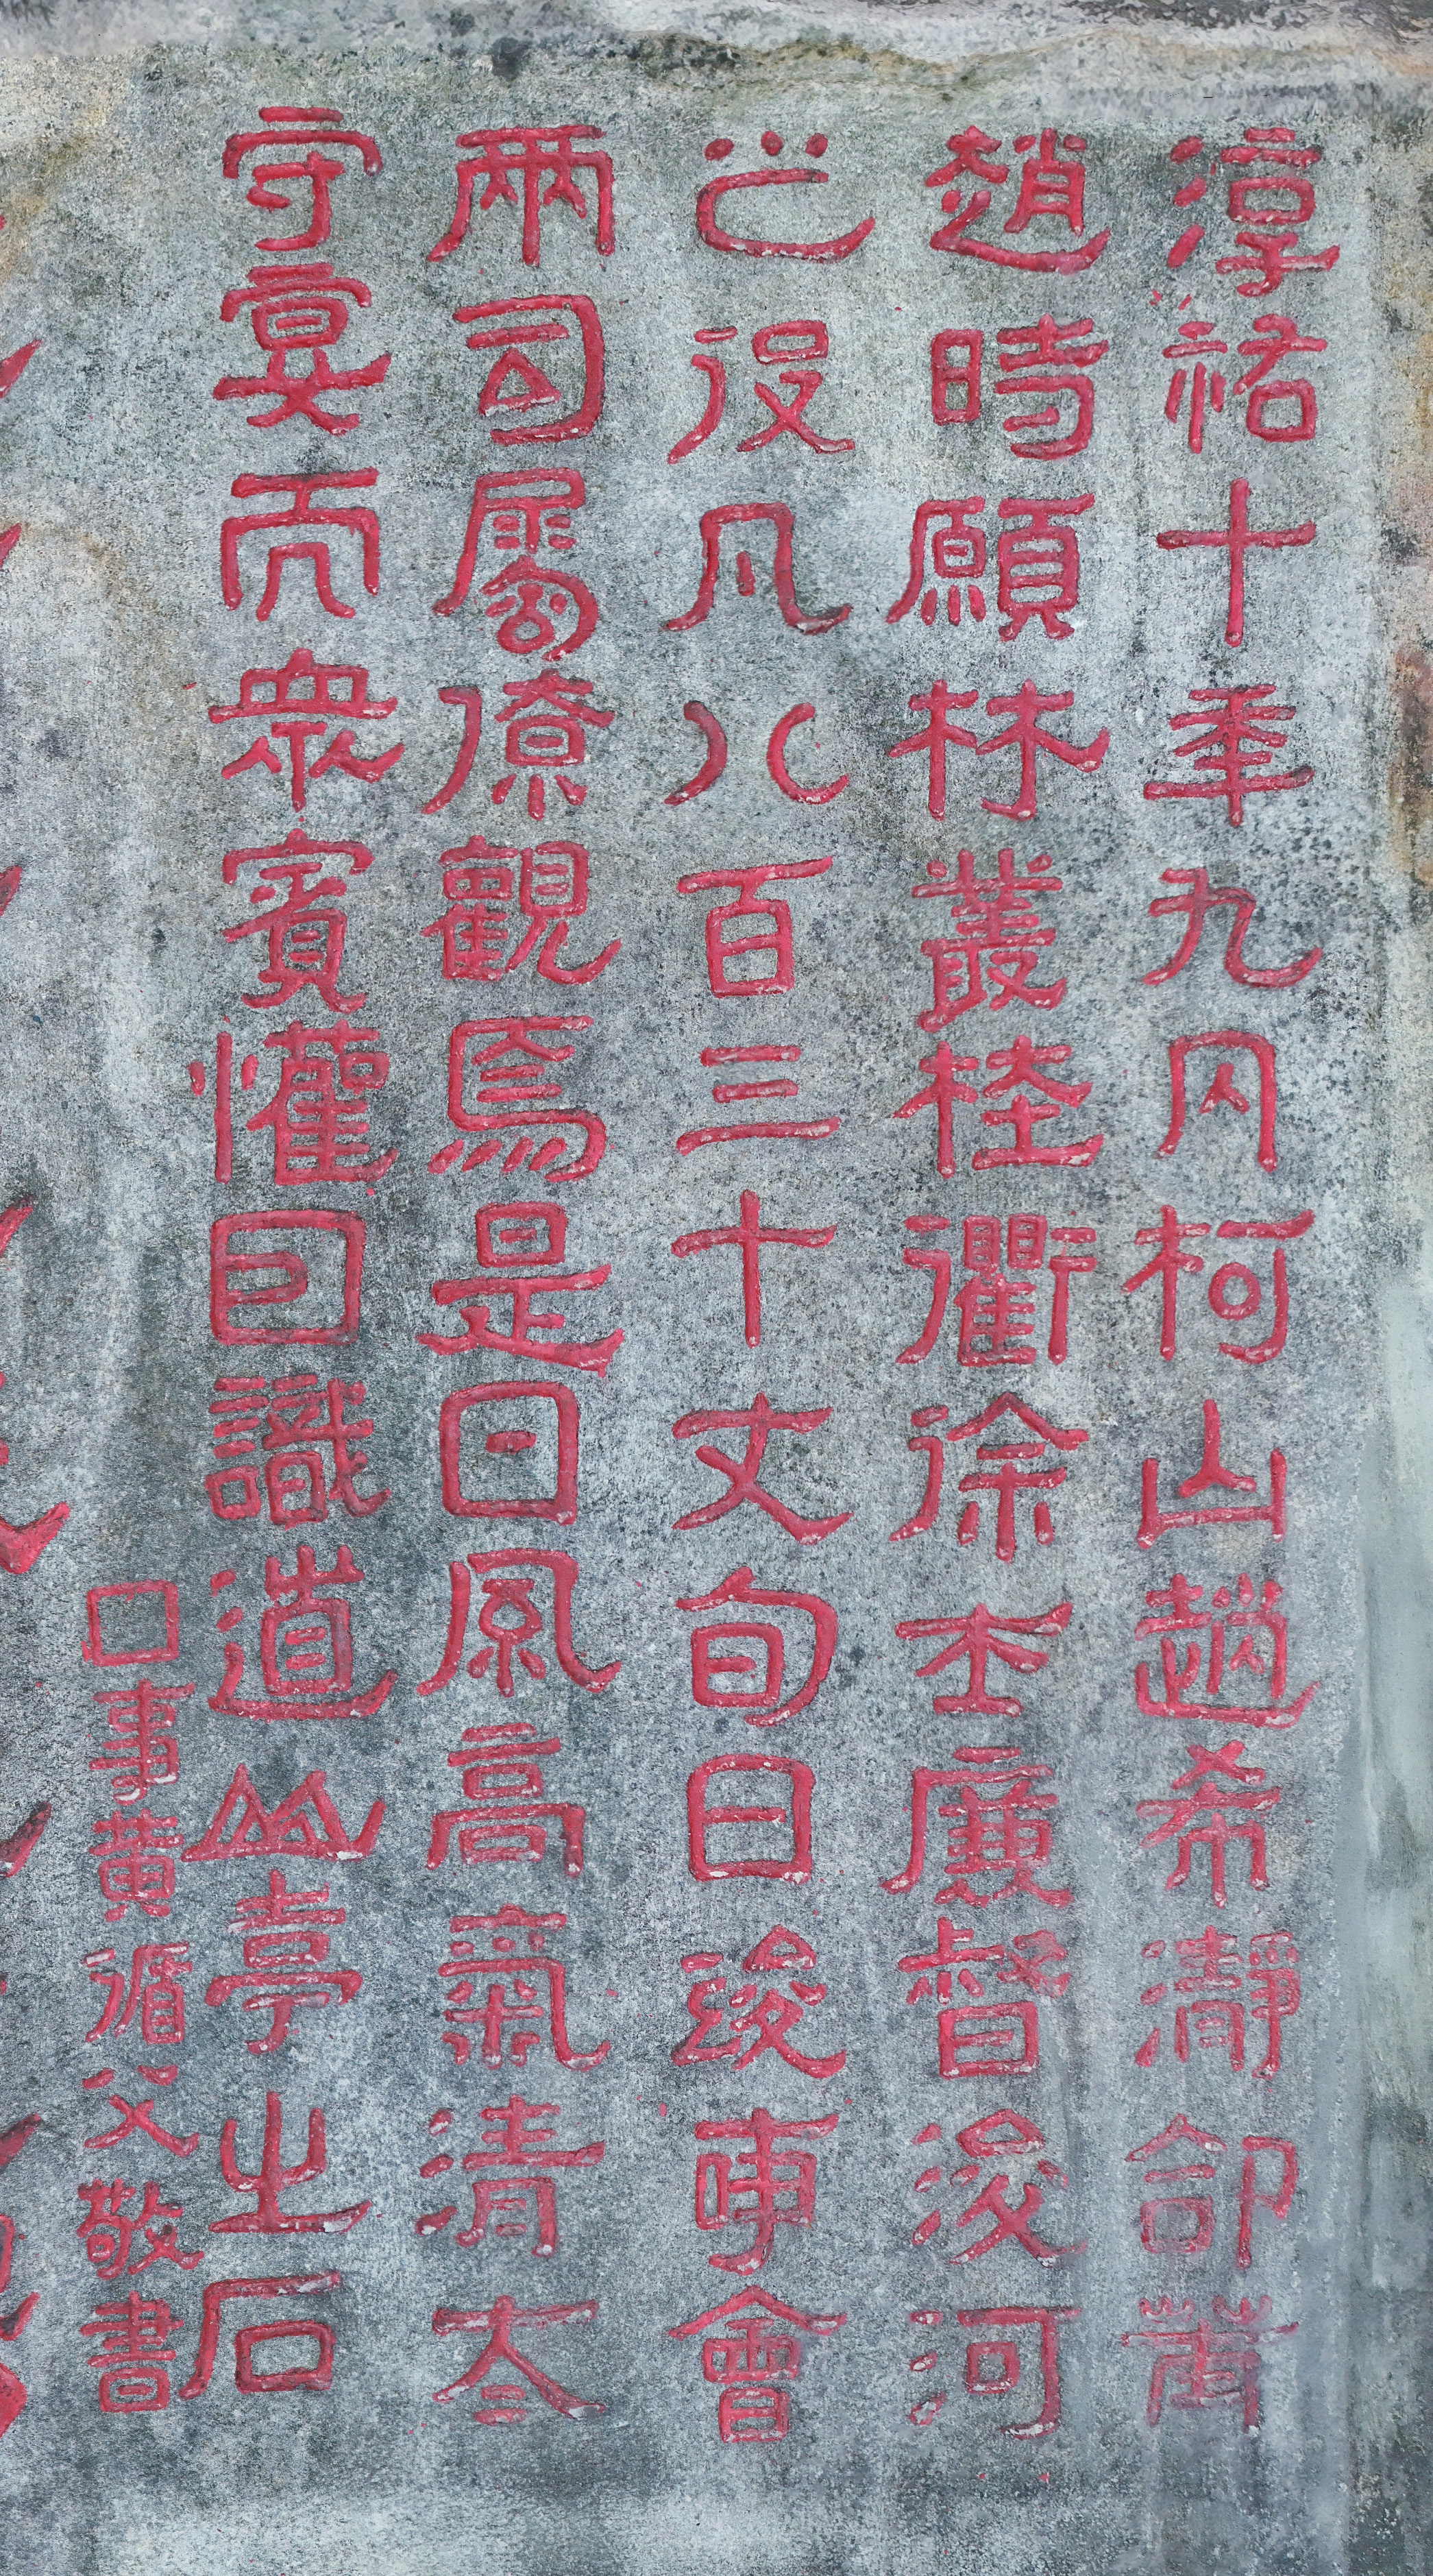 淳祐十年九月柯山趙希瀞命莆
趙時願林叢桂衢徐士廉督浚河
之役凡八百三十丈旬日竣事會
兩司屬僚觀焉是日風高氣清太
守宴而衆賓懽囙識道山亭之石
□事黄循父敬書